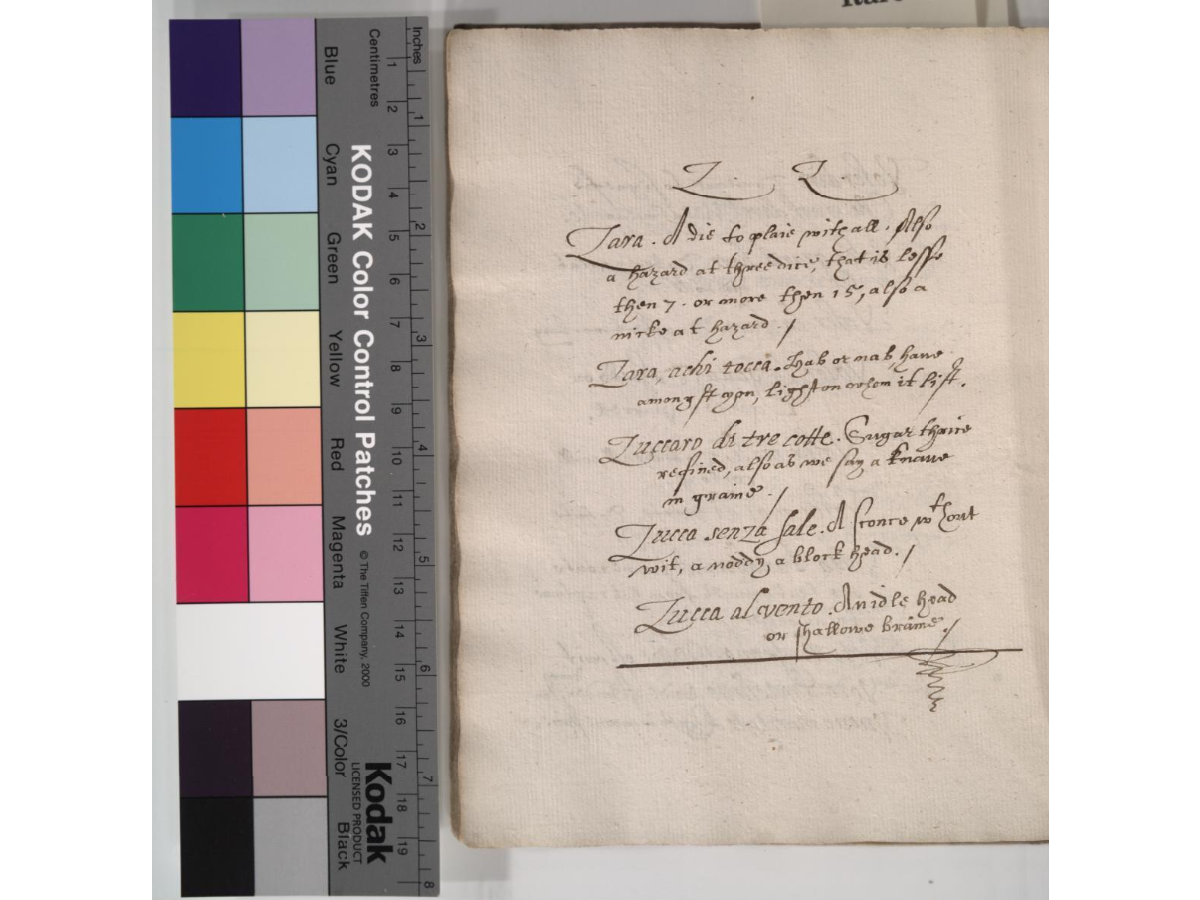 Rare
Inches
Centimetres
Blue
Cyan
Green
Yellow
Red
Magenta
White
3/Color
Black
KODAK Color Control Patches
© The Tiffen Company, 2000
Kodak
LICENSED PRODUCT
1 2 3 4 5 6 7 8 9 10 11 12 13 14 15 16 17 18 19
1 2 3 4 5 6 7 8
Z Z
Zara. A die to plaie withall. Also
a hazard at three dice, that is lesse
then 7. or more then 15, also a
nicke at hazard.
Zara, achi tocca. Hab or nab, have
amongst you, light on whom it list.
Zuccaro di tre cotte. Sugar thrice
refined, also as we say a knave
in graine.
Zucca senza sale. A sconce wthout
wit, a noddy, a block head.
Zucca al vento. An idle head
or shallowe braine.